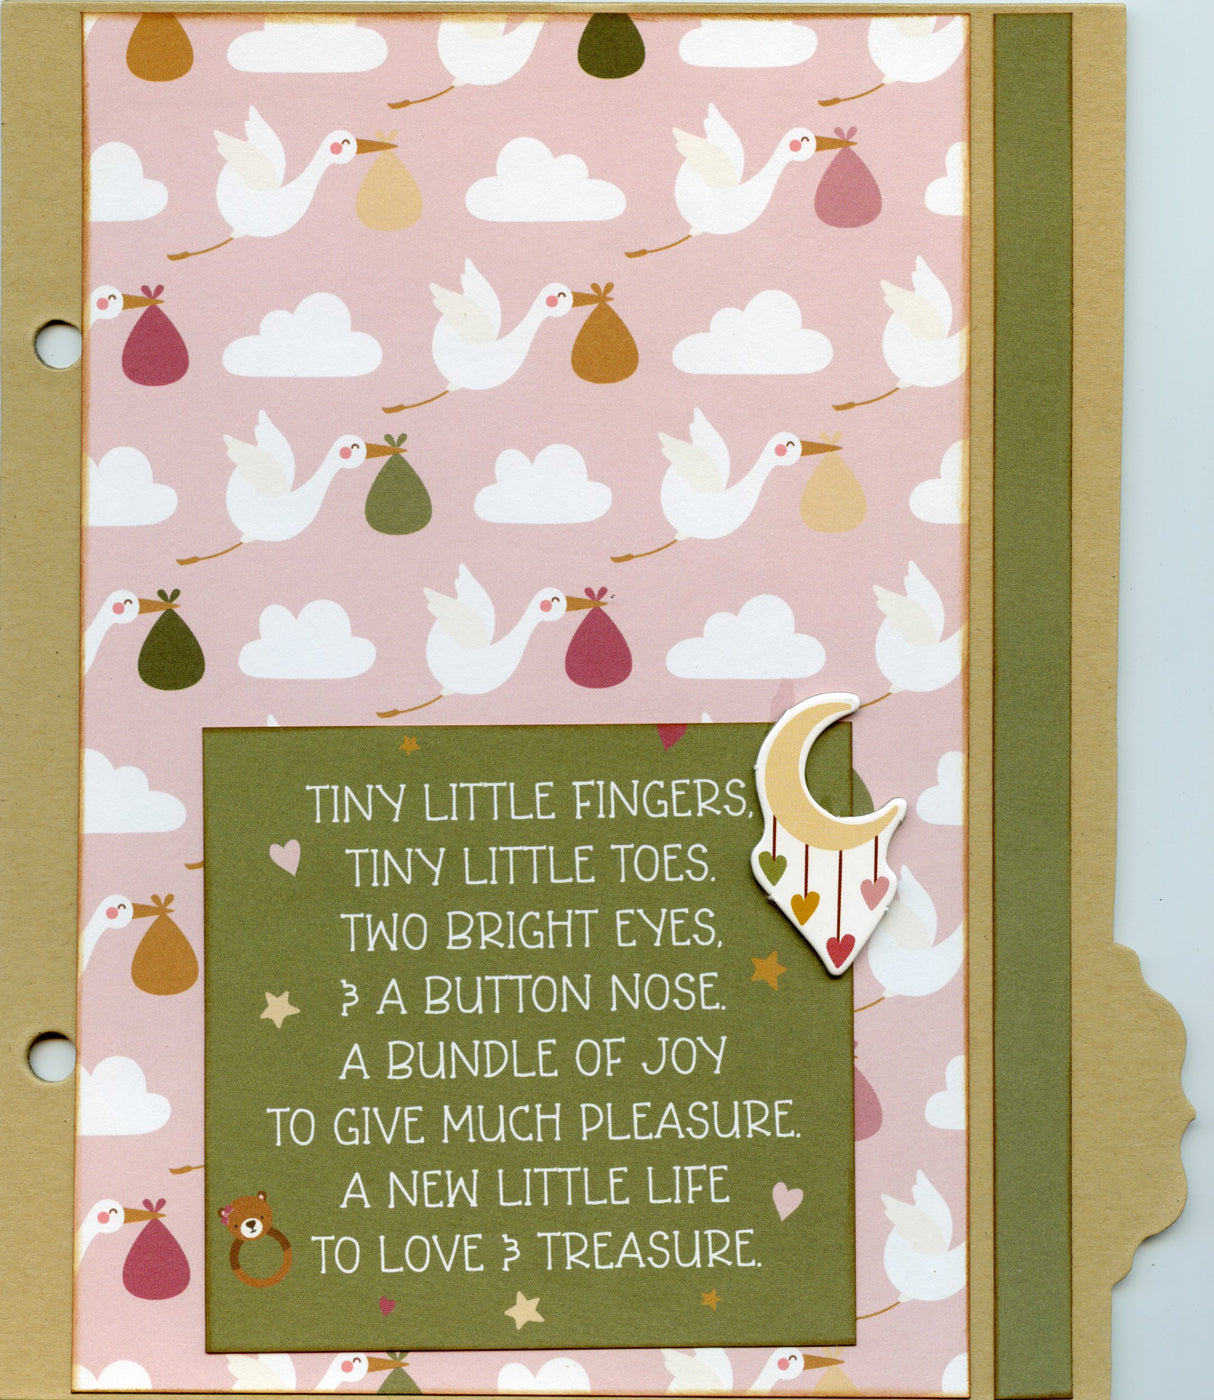 TINY LITTLE FINGERS,
TINY LITTLE TOES.
TWO BRIGHT EYES,
& A BUTTON NOSE.
A BUNDLE OF JOY
TO GIVE MUCH PLEASURE.
A NEW LITTLE LIFE
TO LOVE & TREASURE.